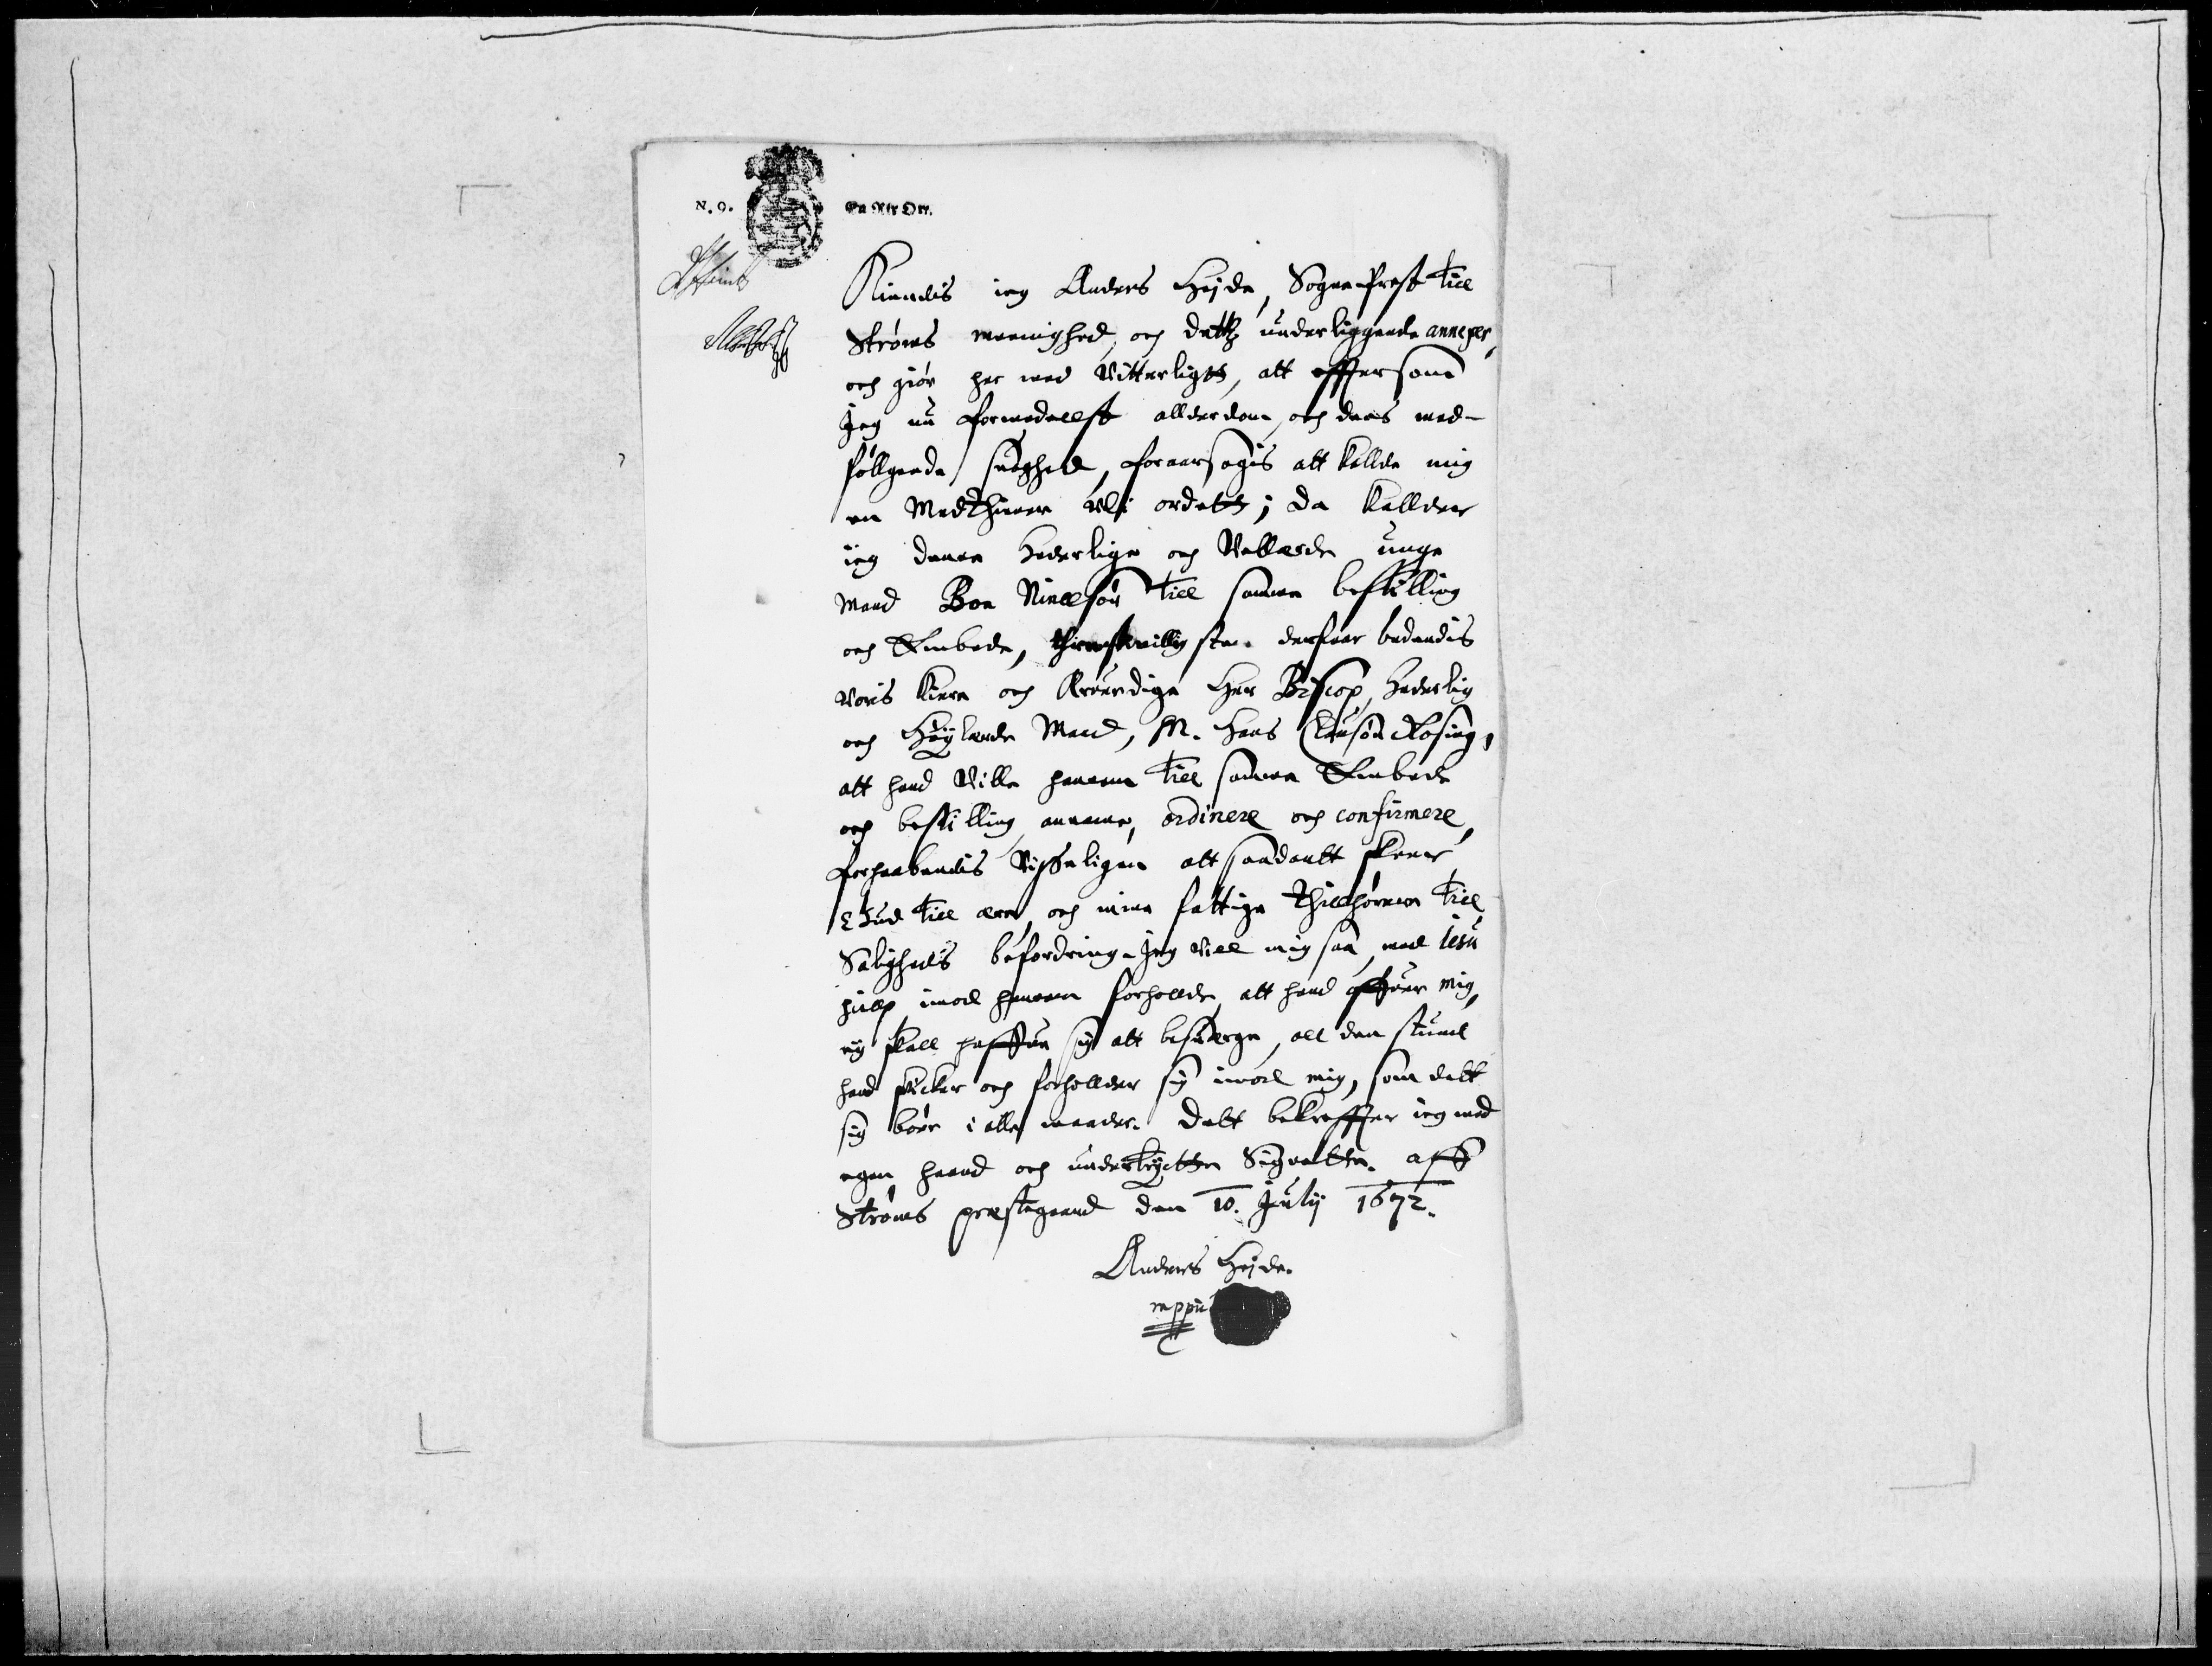 N. 9.
En Rix Ort.
Kiendis ieg Anders Hejde, Sogne Prest till
Strøms meenighed, och dettz underliggende annexer,
och giør her med Vitterligtt, att effterssom
Jeg nu formedelst allderdom, och dens med-
føllgende suaghed, foraarsagis att kallde mig
en Medthiener udi ordett; da kallder
ieg denne Hederlige och Vellærde unge
Mand Boe Nielsøn till samme bestilling
och Embede, thienstwilligsten derfoer bedendis
Voris kiere och Ærværdige Her Biscop, Hederlig
och Høylærde Mand, M. Hans Clausøn Rosing,
att hand Ville hannem till samme Embede
och bestilling annamme, ordinere och confirmere,
forhaabendis Visseligen att saadantt skeer
Gud till ære, och mine fattige Thillhørere till
Saligheds befordring. Jeg vill mig saa, med Jesu
hielp imod hannem forholde, att hand offuer mig,
ey skall haffue sig att besuærge, all den stund
hand skicker och forhollder sig imod mig, som dett
sig bør i alle maader. Dett bekreffter ieg med
egen haand och undertrycktte Signette. aff
Strøms præstegaard den 10. Julij 1672.
Anders Hejde.
mppria